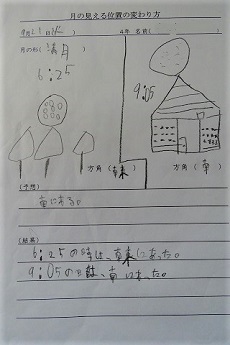 月の見える位置の変わり方
4年 名前( )
月の形(満月)
6:25
9:05
方角(東)
方角(南)
(予想)
南にある。
(結果)
6:25の時は、東にあった。
9:05の時は、南にあった。